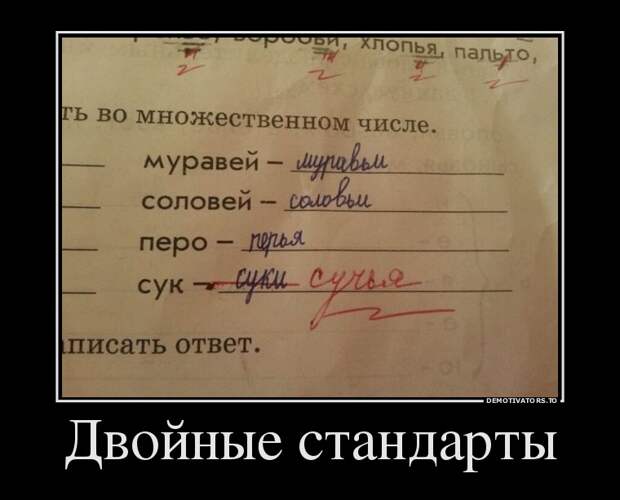 воробьи, хлопья, пальто,
ть во множественном числе.
муравей – муравьи
соловей – соловьи
перо – перья
сук – суки сучья
писать ответ.
DEMOTIVATORS.TO
Двойные стандарты